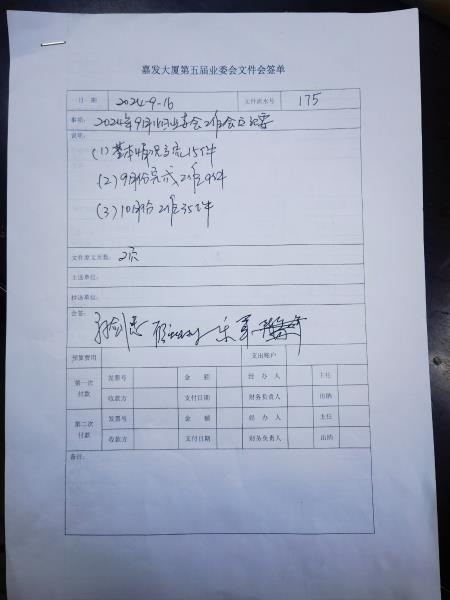 嘉发大厦第五届业委会文件会签单
日 期 2024-9-16 文件流水号 175
事项: 2024年9月业委会工作会议纪要
说明:
(1) 基本情况 15件
(2) 9月份完成工作9件
(3) 10月份工作35件
文件原文页数: 2页
主送单位:
抄送单位:
会签:
预算费用 支出账户
第一次付款 发票号 金 额 经 办 人 主任
收款方 支付日期 财务负责人 出纳
第二次付款 发票号 金 额 经 办 人 主任
收款方 支付日期 财务负责人 出纳
备注: